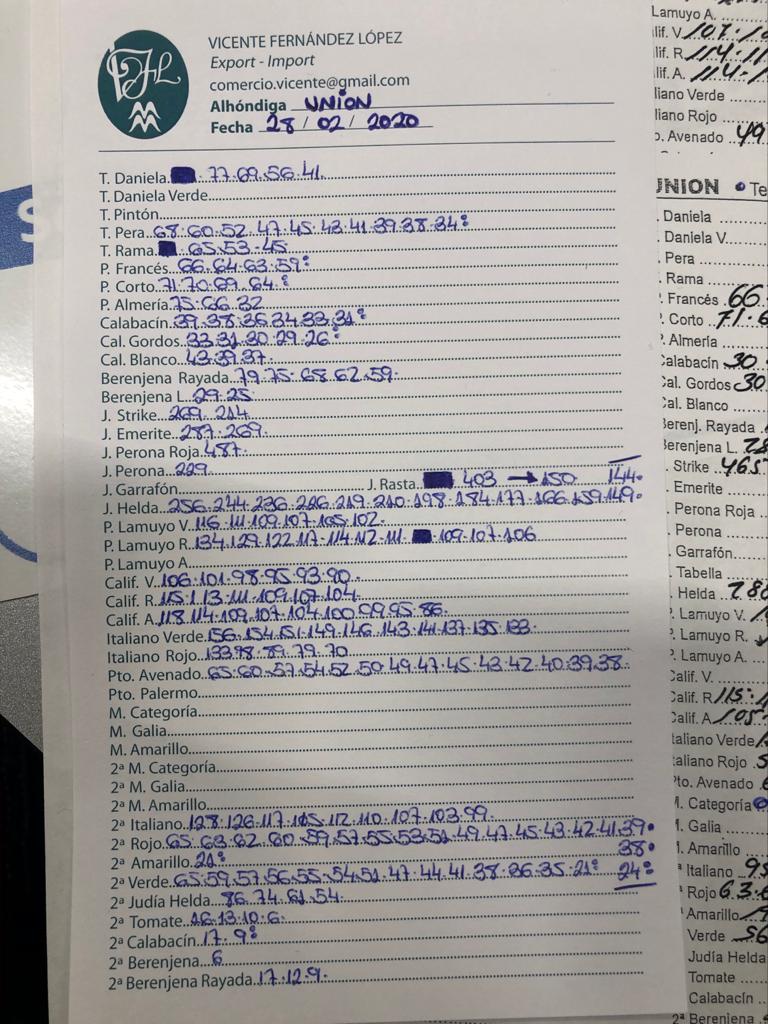 VICENTE FERNÁNDEZ LÓPEZ
Export - Import
comercio.vicente@gmail.com
Alhóndiga UNION
Fecha 28 / 02 / 2020
T. Daniela 77.69.56.41.
T. Daniela Verde
T. Pintón
T. Pera 68.60.52.47.45.43.41.39.38.34:
T. Rama 65.53-45
P. Francés 66.64.63.59:
P. Corto 71.70.69.64:
P. Almería 75.66.32
Calabacín 39.38.36.34.33.31:
Cal. Gordos 33.31.30.29.26:
Cal. Blanco 43.39.37.
Berenjena Rayada 79.75.68.62.59.
Berenjena L. 29.25.
J. Strike 269. 214
J. Emerite 287.269.
J. Perona Roja 487.
J. Perona 229
J. Garrafón J. Rasta. 403 → 150 144.
J. Helda 256.244.236.226.219.210.198.184.177.166.159.149.
P. Lamuyo V. 116.111.109.107.105.102.
P. Lamuyo R. 134.129.122.117.114.112.111. 109.107.106
P. Lamuyo A
Calif. V. 106.101.98.95.93.90.
Calif. R. 115.113.111.109.107.104
Calif. A. 118.114.109.107.104.100.99.95.86.
Italiano Verde 156.154.151.149.146.143.141.137.135.133.
Italiano Rojo 133.98.89.79.70
Pto. Avenado 65.60.57.54.52.50.49.47.45.43.42.40.39.38.
Pto. Palermo
M. Categoría
M. Galia
M. Amarillo
2ª M. Categoría
2ª M. Galia
2ª M. Amarillo
2ª Italiano 128.126.117.115.112.110.107.103.99.
2ª Rojo 65.63.62.60.59.57.55.53.51.49.47.45.43.42.41.39.
38.
2ª Amarillo 21:
2ª Verde 65.59.57.56.55.54.51.47.44.41.38.36.35.21: 24:
2ª Judía Helda 86.74.61.54.
2ª Tomate 16.13.10.6.
2ª Calabacín 17.9:
2ª Berenjena 6
2ª Berenjena Rayada 17.12.9.
Lamuyo A.
lif. V.
lif. R
lif. A.
liano Verde
liano Rojo
o. Avenado 49
UNION Te
Daniela
Daniela V.
Pera
Rama
Francés 66
Corto 71.6
Almería
Calabacín 30
Cal. Gordos 30
Cal. Blanco
Berenj. Rayada
Berenjena L.
Strike 465
Emerite
Perona Roja
Perona
Garrafón
Tabella
Helda 280
P. Lamuyo V.
P. Lamuyo R.
P. Lamuyo A.
Calif. V.
Calif. R 115.
Calif. A 105
Italiano Verde
Italiano Rojo
Pto. Avenado
M. Categoría
M. Galia
Amarillo
Italiano 95
Rojo 63.
Amarillo
Verde 56
Judía Helda
Tomate
Calabacín
2ª Berenjena